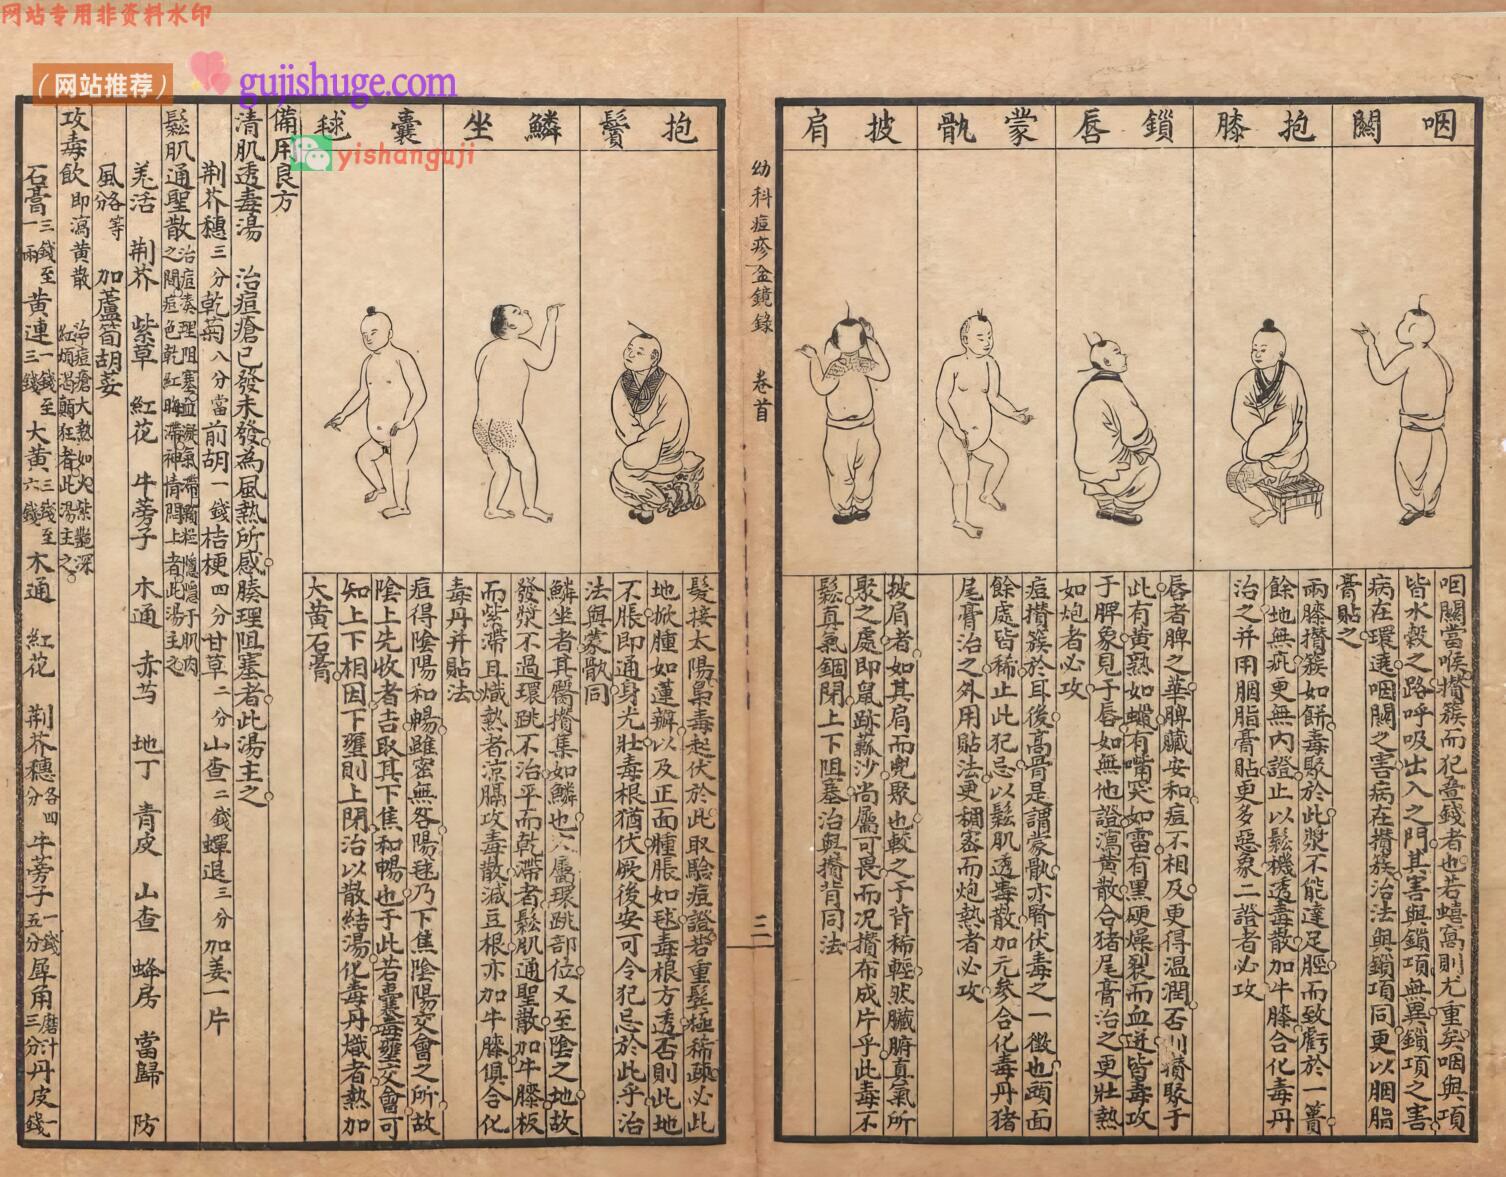 网站专用非资料水印
（网站推荐）
gujishuge.com
yishanguji
咽關
抱膝
鎖唇
蒙骩
披肩
咽關當喉攢簇而犯疊錢者也若蟢窩則尤重矣咽與項
皆水穀之路呼吸出入之門其害與鎖項無異鎖項之害
病在環遶咽關之害病在攢簇治法與鎖項同更以胭脂
膏貼之
兩膝攢簇如餅毒聚於此漿不能達足脛而致虧於一簣
餘地無疪更無內證止以鬆機透毒散加牛膝合化毒丹
治之并用胭脂膏貼更多惡象二證者必攻
唇者脾之華脾臟安和痘不相及更得温潤否則攢聚于
此有黃熟如蠟有嘴突如雷有黑硬燥裂而血迸皆毒攻
于脾象見于唇如無他證瀉黃散合猪尾膏治之更壯熱
如炮者必攻
痘攢簇於耳後高骨是謂蒙骩亦臀伏毒之一徵也頭面
餘處皆稀止此犯忌以鬆肌透毒散加元參合化毒丹猪
尾膏治之外用貼法更稠宻而炮熱者必攻
披肩者如其肩而兜聚也較之于背稀輕然臟腑真氣所
聚之處即鼠跡蘇沙尚屬可畏而况攢布成片乎此毒不
鬆真氣錮閉上下阻塞治與攢背同法
幼科痘疹金鏡錄
卷首
三
抱鬢
鱗坐
囊毬
髮接太陽梟毒起伏於此取驗痘證若重髮極稀疎必此
地掀腫如蓮瓣以及正面腫脹如毬毒根方透否則此地
不脹即通身光壯毒根猶伏厥後安可令犯忌於此乎治
法與蒙骩同
鱗坐者其臀攢集如鱗也六屬環跳部位又至陰之地故
發漿不過環跳不治平而乾滯者鬆肌通聖散加牛膝板
而紫滯且熾熱者涼膈攻毒散減豆根亦加牛膝俱合化
毒丹并貼法
痘得陰陽和暢雖密無咎陽毬乃下焦陰陽交會之所故
陰上先收者吉取其下焦和暢也于此若囊毒壅交會可
知上下相因下壅則上閉治以散結湯化毒丹熾者熱加
大黃石膏
備用良方
清肌透毒湯　治痘瘡已發未發為風熱所感腠理阻塞者此湯主之
荆芥穗三分乾菊八分當前胡一錢桔梗四分甘草二分山查二錢蟬退三分加姜一片
鬆肌通聖散治痘湊理阻塞血凝氣滯觸粧隱隱于肌肉
之間痘色乾紅晦滯神情悶上者此湯主之
羌活　荆芥　紫草　紅花　牛蒡子　木通　赤芍　地丁　青皮　山查　蜂房　當歸　防
風各等分　加蘆筍胡荽
攻毒飲即瀉黃散　治痘瘡大熱如火紫艷深
紅煩渴顛狂者此湯主之
石膏三錢至一兩黃連一錢至三錢大黃三錢至六錢木通　紅花　荆芥穗各四分牛蒡子一錢五分犀角磨汁三分丹皮一錢